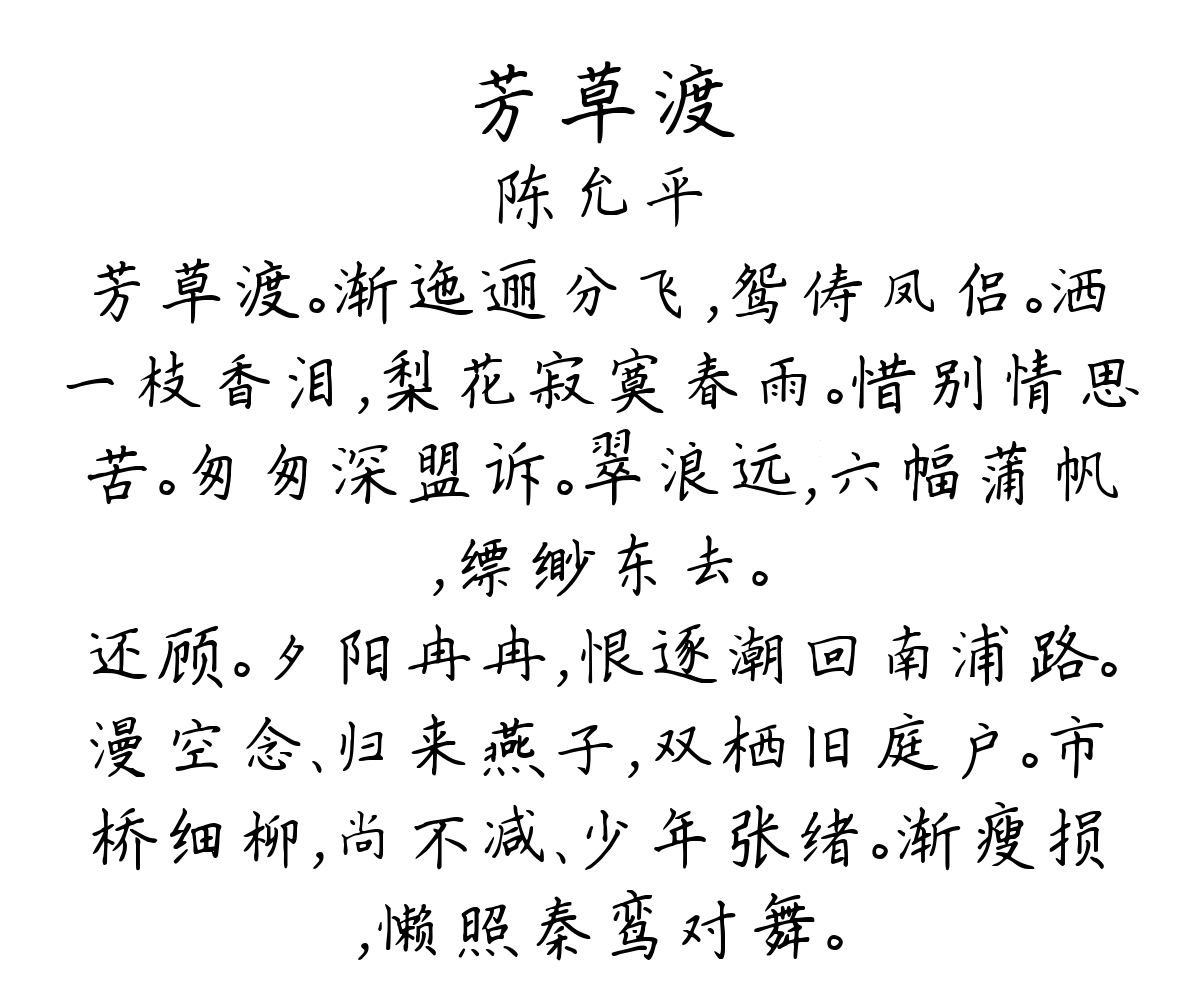 芳草渡
陈允平
芳草渡。渐迤逦分飞,鸳俦凤侣。洒
一枝香泪,梨花寂寞春雨。惜别情思
苦。匆匆深盟诉。翠浪远,六幅蒲帆
,缥缈东去。
还顾。夕阳冉冉,恨逐潮回南浦路。
漫空念、归来燕子,双栖旧庭户。市
桥细柳,尚不减、少年张绪。渐瘦损
,懒照秦鸾对舞。